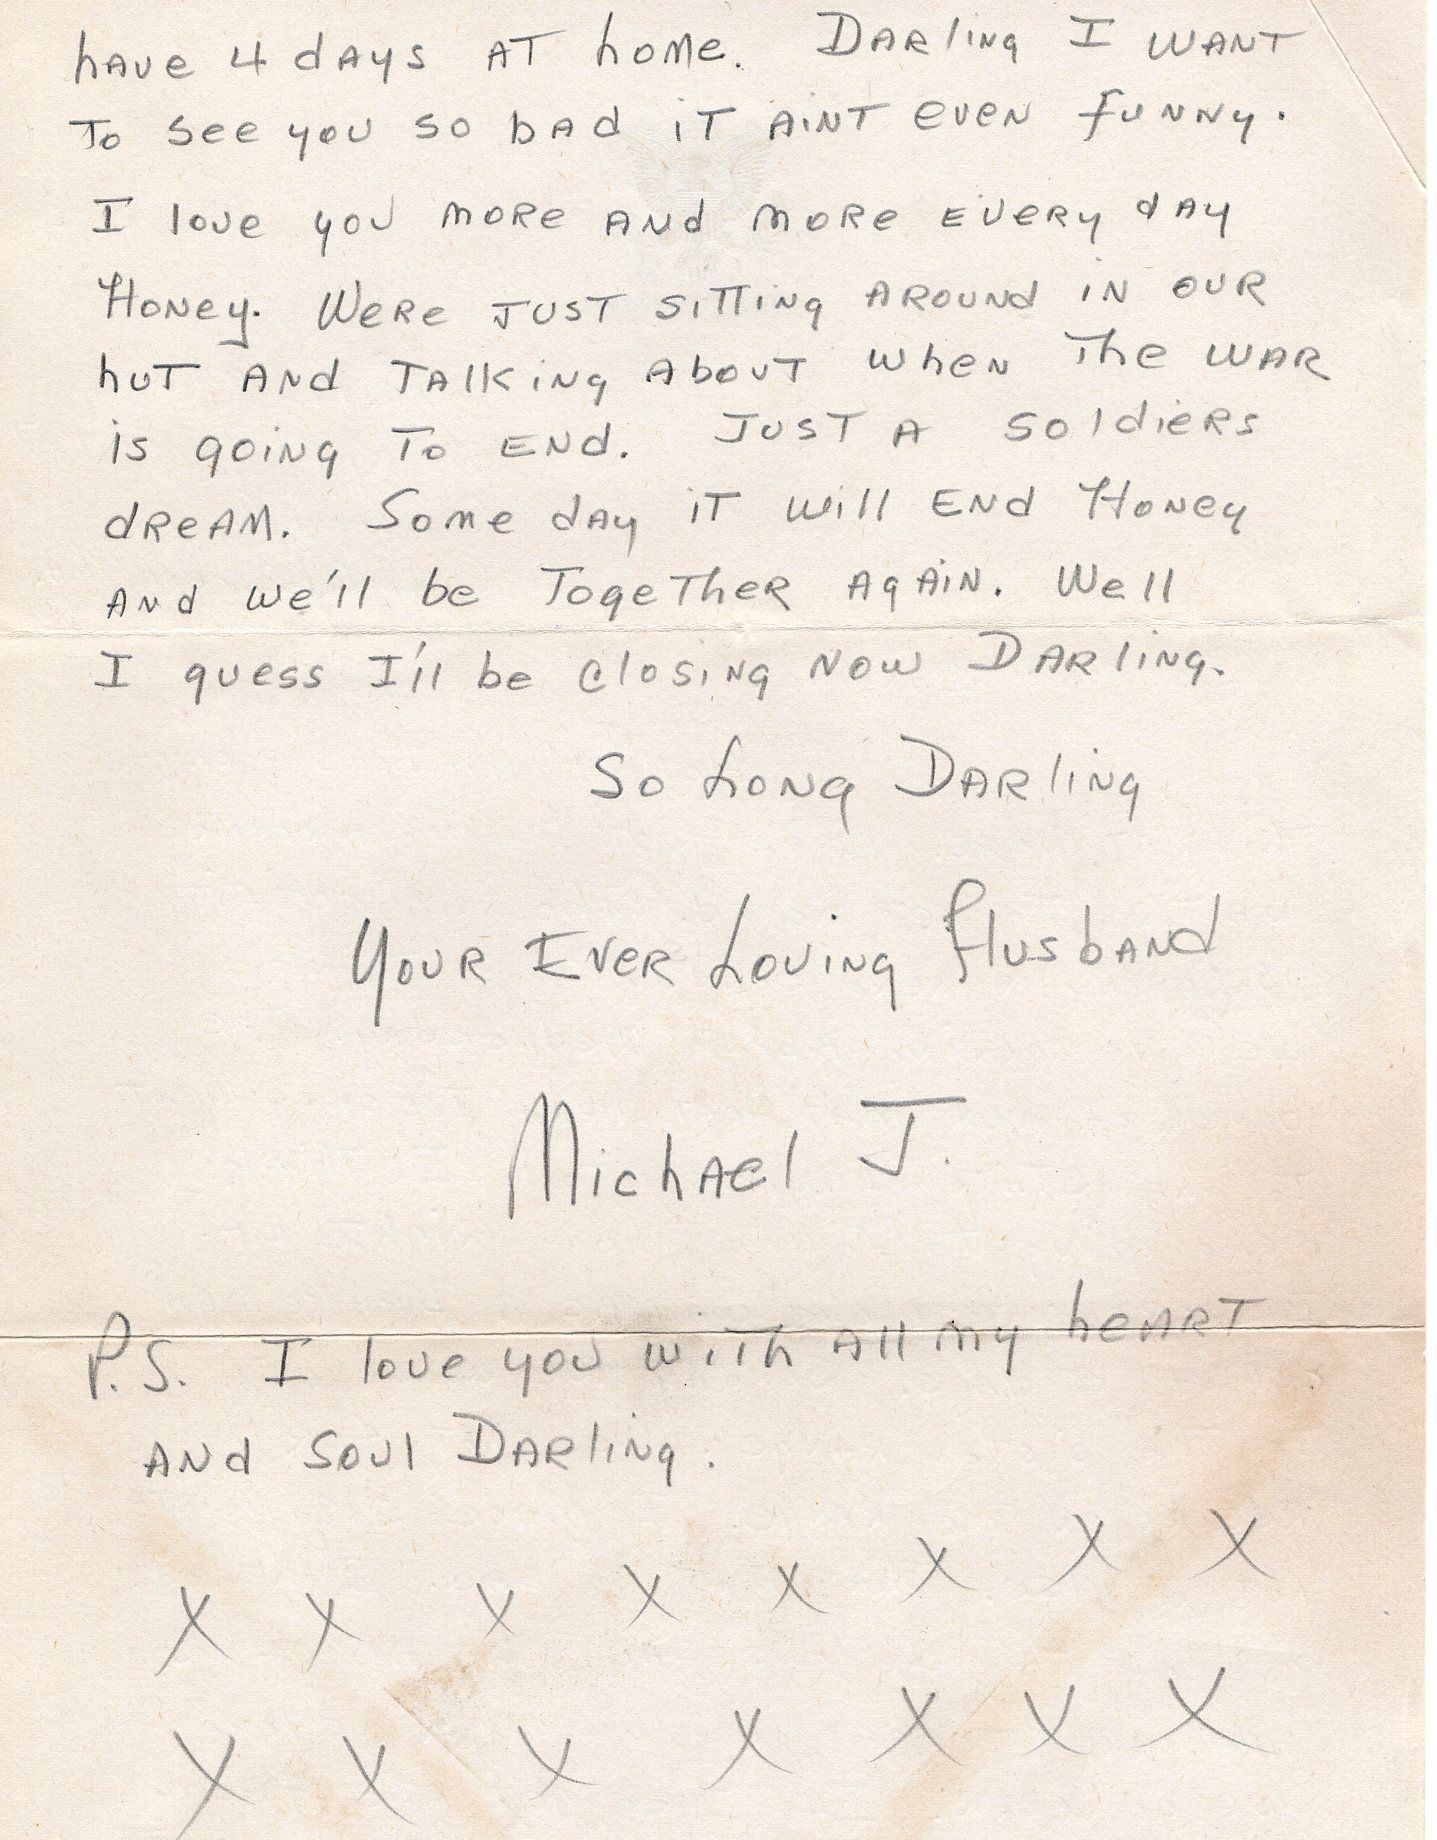 have 4 days at home. Darling I want
to see you so bad it aint even funny.
I love you more and more every day
Honey. Were just sitting around in our
hut and talking about when the war
is going to end. Just a soldiers
dream. Some day it will end Honey
and we'll be together again. Well
I guess I'll be closing now Darling.
So Long Darling
Your Ever Loving Husband
Michael J.
P.S. I love you with all my heart
and soul Darling.
X X X X X X X X
X X X X X X X